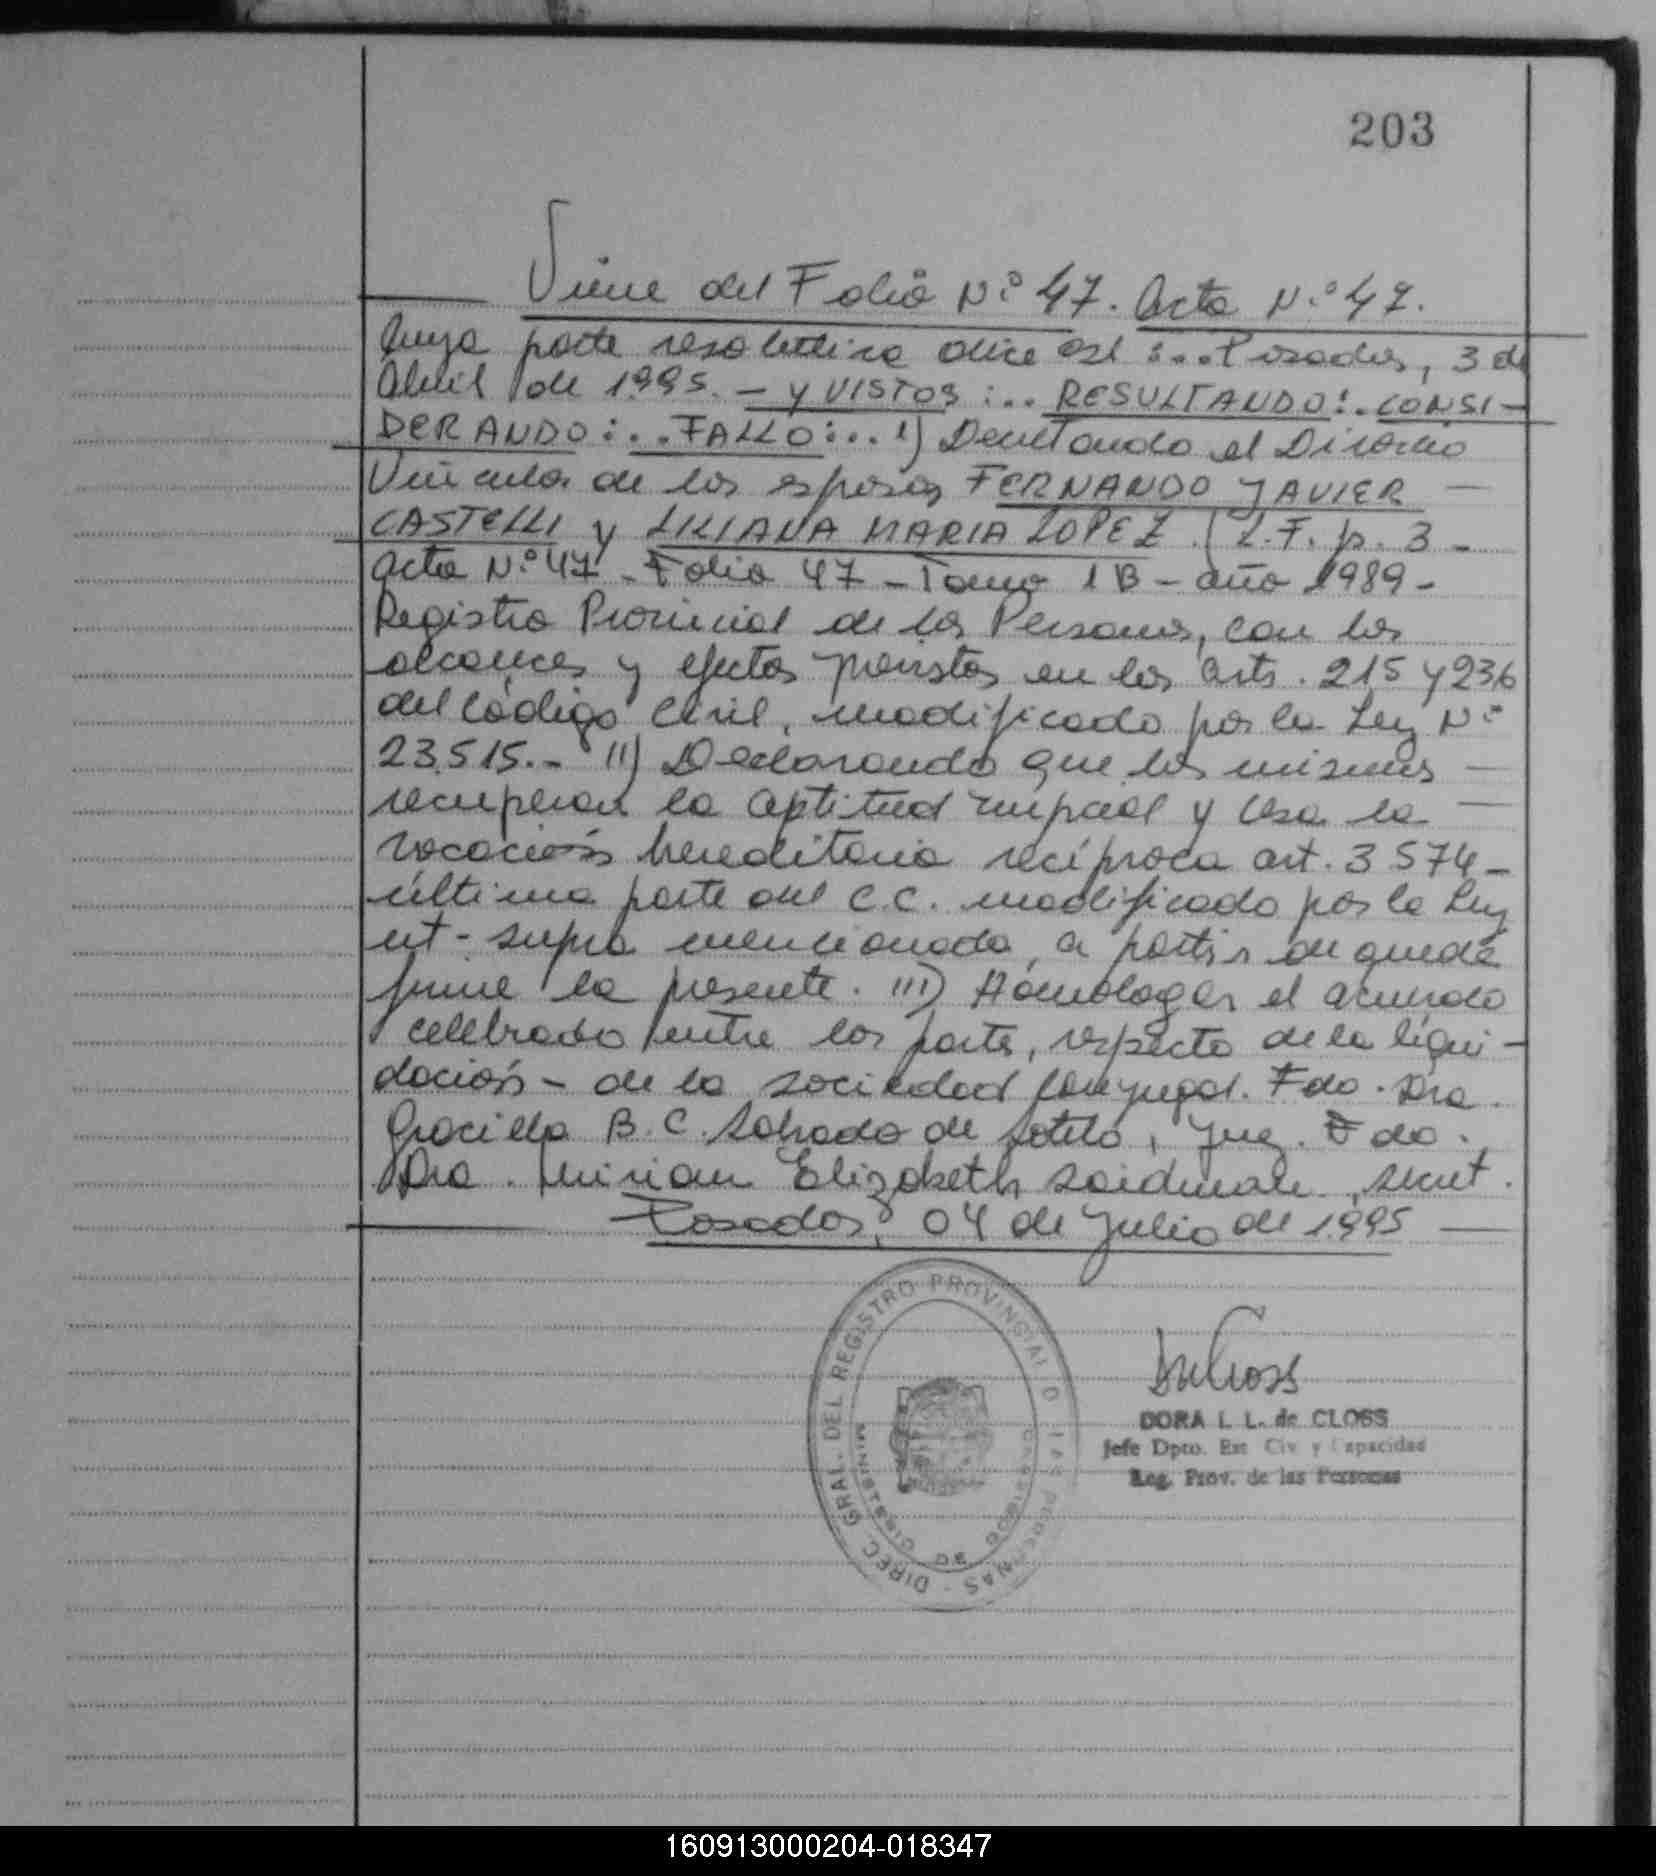 203
Viene del Folio N.º 47. Acta N.º 47.
Cuya parte resolutiva dice así :... Posadas, 3 de
Abril de 1.995. - y VISTOS :.. RESULTANDO:. CONSI-
DERANDO:..FALLO:.. 1) Decretando el Divorcio
Vincular de los esposos FERNANDO JAVIER -
CASTELLI y LILIANA MARIA LOPEZ. (L.F. p. 3 -
Acta N.º 47 - Folio 47 - Tomo 1 B - año 1989 -
Registro Provincial de las Personas, con los
alcances y efectos previstos en los arts. 215 y 236
del Código Civil, modificado por la Ley N.º
23.515.- II) Declarando que los mismos -
recuperan la aptitud nupcial y cesa la -
vocación hereditaria recíproca art. 3574 -
última parte del C.C. modificado por la Ley
ut-supra mencionada, a partir de quede
firme la presente. III) Homologar el acuerdo
celebrado entre las parte, respecto de la liqui-
dación - de la sociedad conyugal. Fdo. Dra.
Graciella B. C. Salvado de Sotelo, Juez. Fdo.
Dra. Miriam Elizabeth Saidman, secret.
Posadas, 04 de Julio de 1.995
DIREC. GRAL. DEL REGISTRO PROVINCIAL D LAS PERSONAS
MINISTERIO DE GOBIERNO
DORA I. L. de CLOSS
Jefe Dpto. Est Civ y Capacidad
Reg. Prov. de las Personas
160913000204-018347